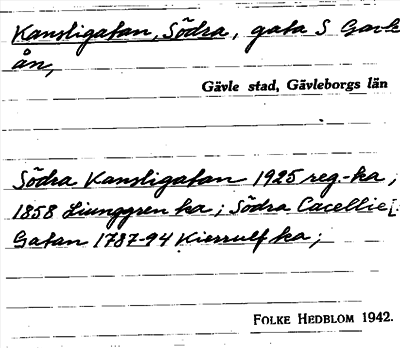 Kansligatan, Södra, gata S Gavle
ån,
Gävle stad, Gävleborgs län
Södra Kansligatan 1925 reg.-ka;
1858 Ljunggren ka; Södra Cacellie[
Gatan 1787-94 Kierrulf ka;
FOLKE HEDBLOM 1942.